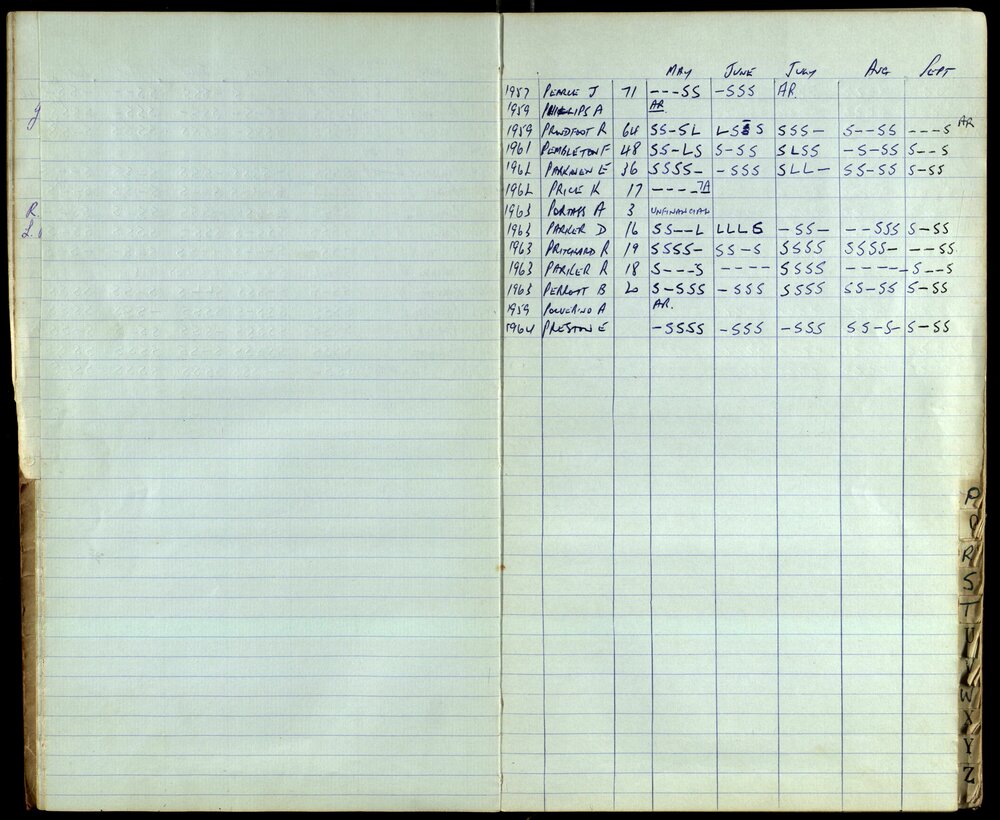 MAY JUNE JULY AUG SEPT
1957 PEARCE J 71 ---SS -SSS AR.
1959 PHILLIPS A AR.
1959 PROUDFOOT R 64 SS-SL LSSS SSS- S--SS ---S AR
1961 PEMBLETON F 48 SS-LS S-SS SLSS -S-SS S--S
1962 PARKINEN E 36 SSSS- -SSS SLL- SS-SS S-SS
1962 PRICE K 17 ----
1963 PORTASS A 3 UNFINANCIAL
1963 PARKER D 16 SS--L LLLS -SS- --SSS S-SS
1963 PRITCHARD R 19 SSSS- SS-S SSSS SSSS- --SS
1963 PARKER R 18 S---S ---- SSSS ----- S--S
1963 PERROTT B 20 S-SSS -SSS SSSS SS-SS S-SS
1959 POLVERINO A AR.
1964 PRESTON E -SSSS -SSS -SSS SS-S- S-SS
R
L
P
R
S
T
U
V
W
X
Y
Z